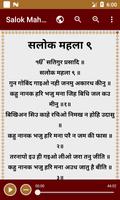 Salok Mah...
सलोक महला ९
ੴ सतिगुर प्रसादि ॥
सलोक महला ९ ॥
गुन गोबिंद गाइओ नही जनमु अकारथ कीनु ॥
कहु नानक हरि भजु मना जिह बिधि जल कउ मीनु ॥१॥
बिखिअन सिउ काहे रचिओ निमख न होहि उदासु ॥
कहु नानक भजु हरि मना परै न जम की फास ॥२॥
तरनापो इउ ही गइओ लीओ जरा तनु जीति ॥
कहु नानक भजु हरि मना अउध जातु है
00:00
44:03